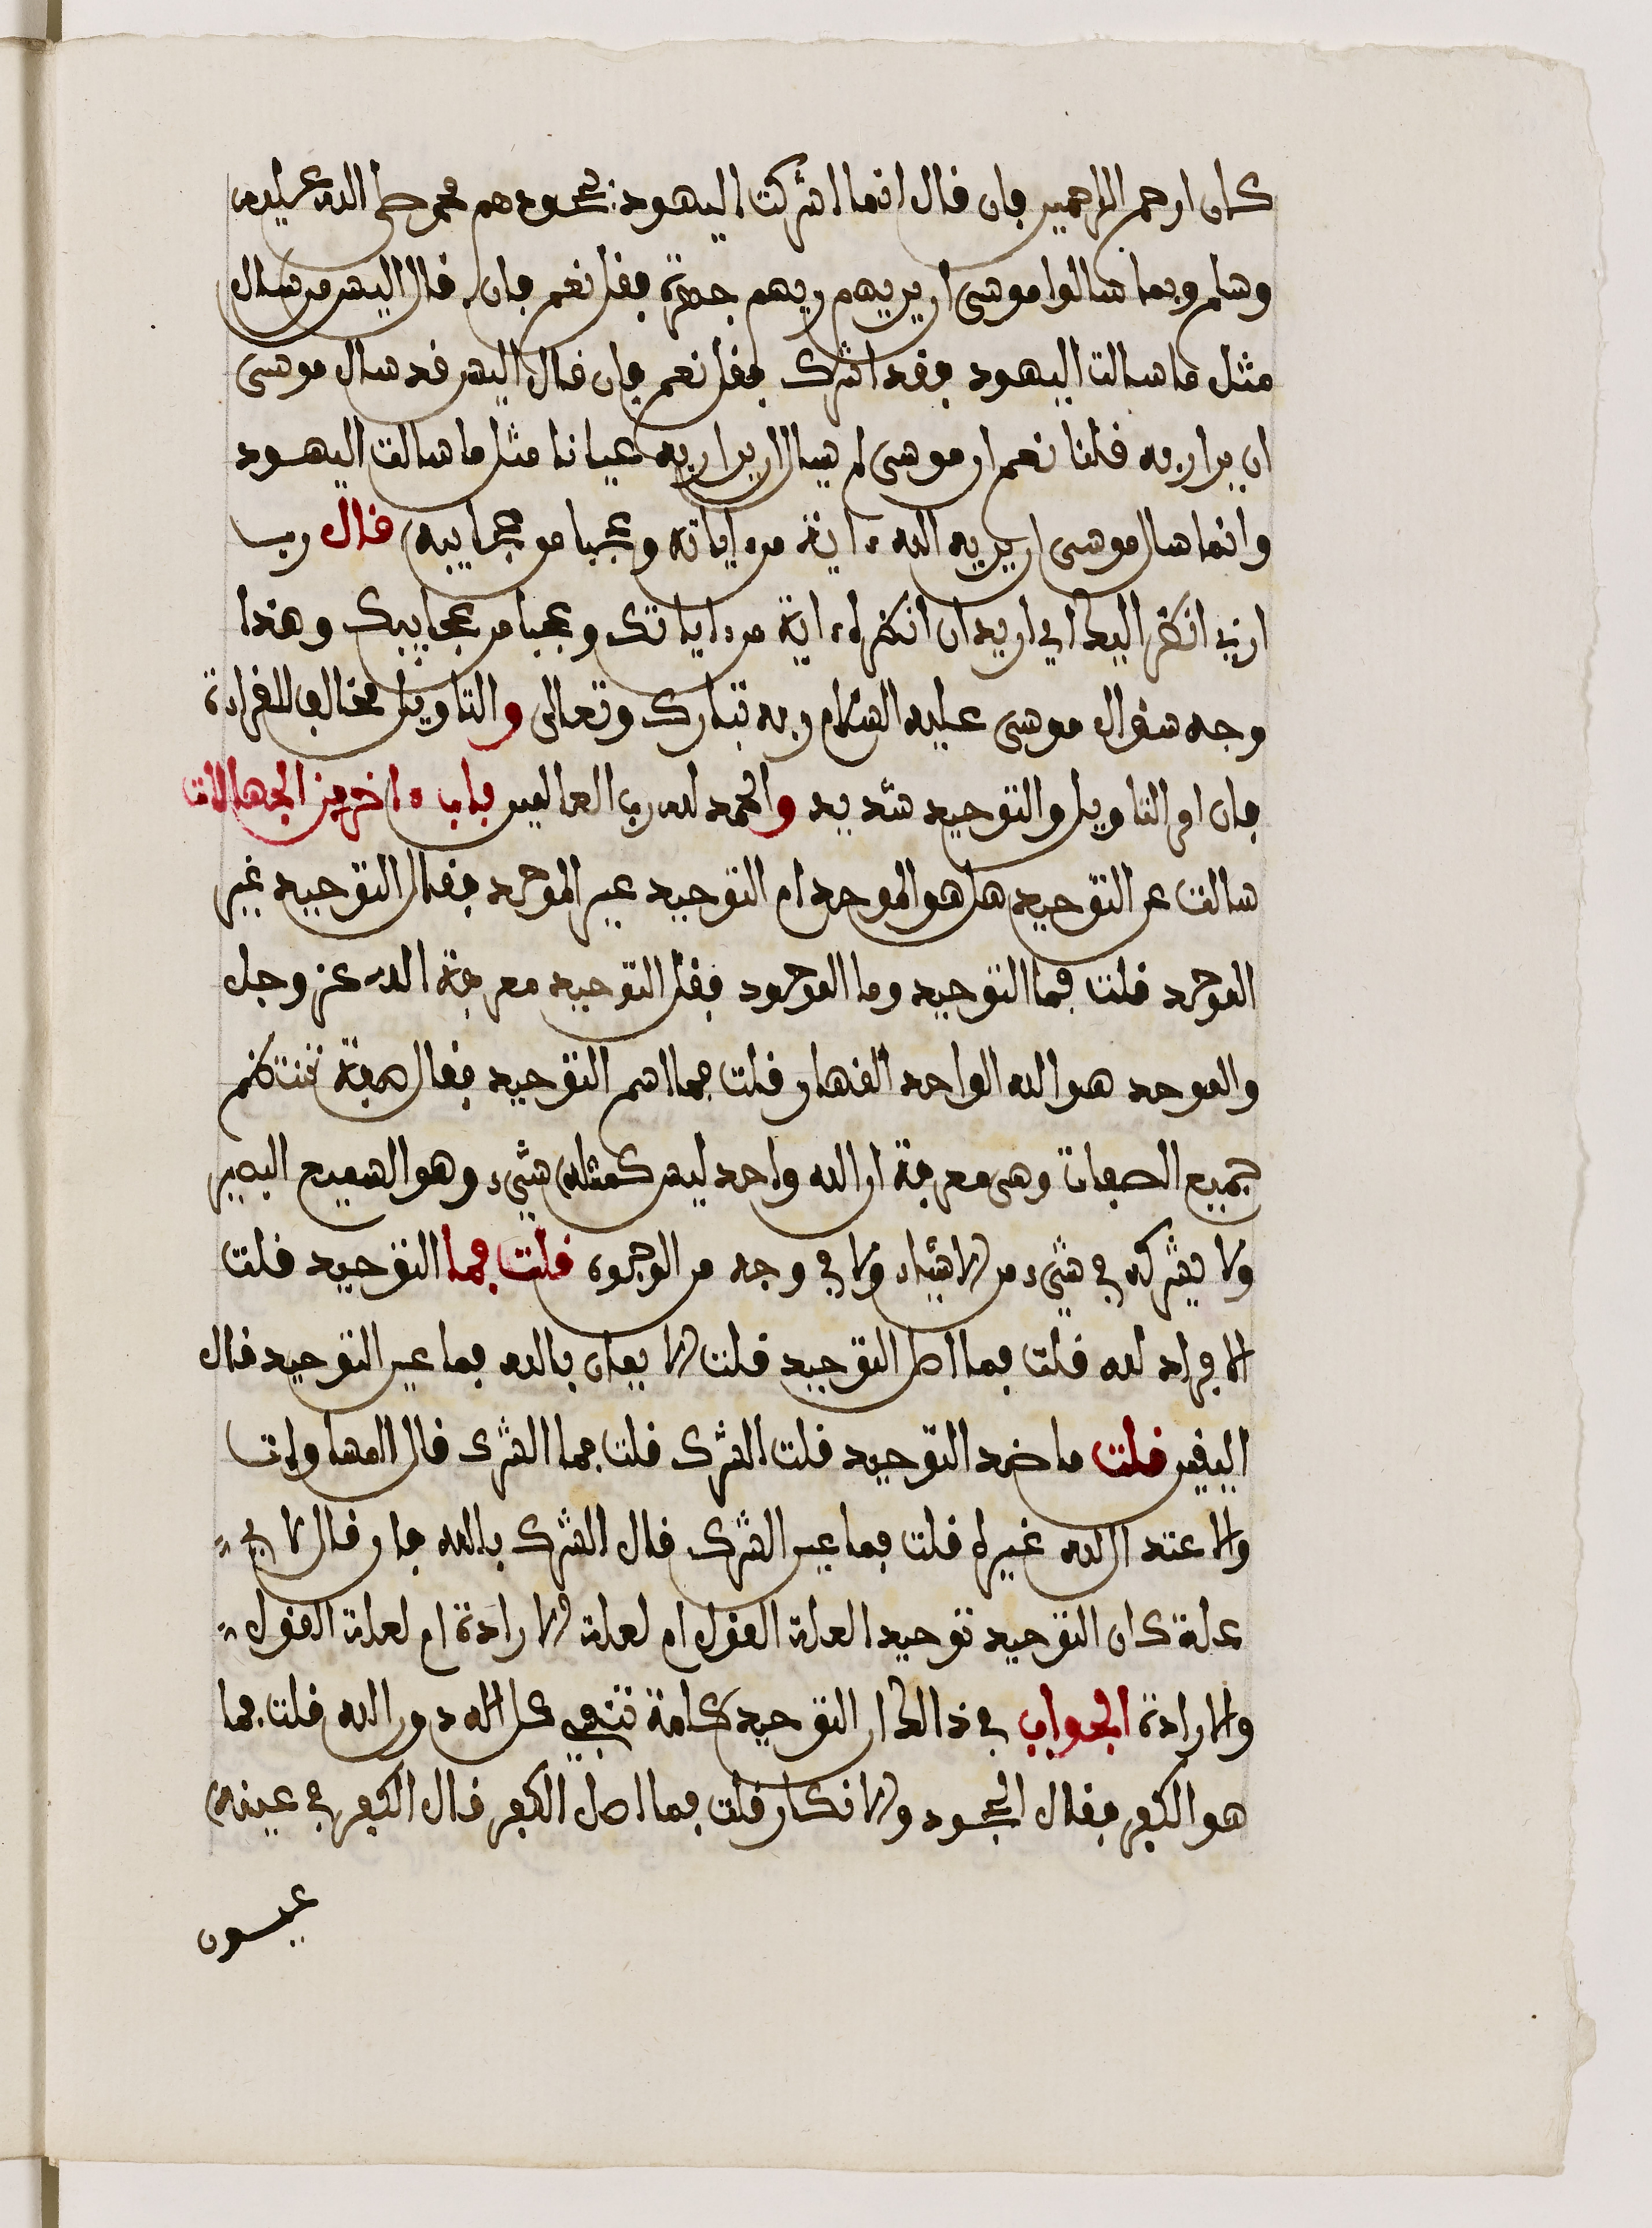 كان ارحم الراحمين فان قال انما اشركت اليهود بجحودهم محمد صلى الله عليه
وسلم وبما سالوا موسى ان يريهم ربهم جهرة فقل نعم فان قال اليس من سال
مثل ما سالت اليهود فقد اشرك فقل نعم فان قال اليس قد سال موسى
ان يرا ربه قلنا نعم ان موسى لم يسال ان يرا ربه عيانا مثل ما سالت اليهود
وانما سال موسى ان يريه الله ءاية من ءاياته وعجبا من عجايبه قال رب
ارني انظر اليك اني اريد ان انظر الى ءاية من ءاياتك وعجبا من عجايبك وهذا
وجه سؤال موسى عليه السلام ربه تبارك وتعالى والتاويل مخالف للقراءة
فان امر التاويل والتوحيد شديد والحمد لله رب العالمين باب ءاخر من الجهالات
سالت عن التوحيد هل هو الموحد ام التوحيد غير الموحد فقال التوحيد غير
الموحد قلت فما التوحيد وما الموحد فقل التوحيد معرفة الله عز وجل
والموحد هو الله الواحد القهار قلت فما اسم التوحيد فقال صفة تنتظم
جميع الصفات وهي معرفة ان الله واحد ليس كمثله شيء وهو السميع البصير
ولا يشركه في شيء من الاشياء ولا في وجه من الوجوه قلت فما التوحيد قلت
الافراد لله قلت فما اصل التوحيد قلت الايمان بالله فما عين التوحيد قال
اليقين قلت ما ضد التوحيد قلت الشرك قلت فما الشرك قال المساوات
والا عند ال لله غيره قلت فما عين الشرك قال الشرك بالله فان قال لاي
علة كان التوحيد توحيد العلة القول ام لعلة الارادة ام لعلة القول
والارادة الجواب في ذالك ان التوحيد كلمة تنفي كل اله دون الله قلت فما
هو الكفر فقال الجحود والانكار قلت فما اصل الكفر قال الكفر في عينه